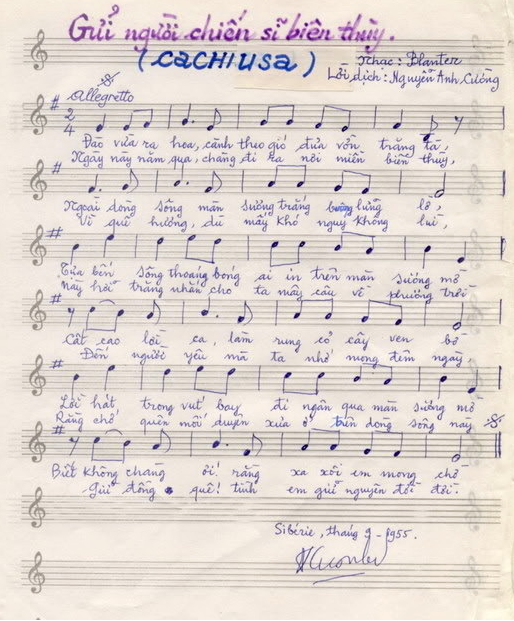 Gửi người chiến sĩ biên thùy.
(CACHIUSA)
Nhạc: Blanter
Lời dịch: Nguyễn Anh Cường
Allegretto
2
4
Đào vừa ra hoa, cành theo gió đưa vờn trăng tà,
Ngày này năm qua, chàng đi ra nơi miền biên thùy,
Ngoài dòng sông màn sương trắng buông lững lờ,
Vì quê hương, dù mấy khó nguy không lui,
Cửa bến sông thoáng bóng ai in trên màn sương mờ
Này hỡi trăng nhắn cho ta mấy câu về phương trời
Cất cao lời ca, làm rung cỏ cây ven bờ
Đến người yêu mà ta nhớ mong đêm ngày
Lời hát trong vút bay đi ngân qua màn sương mờ
Rằng chớ quên mối duyên xưa ở trên dòng sông này
Biết không chàng ơi! rằng xa xôi em mong chờ
Giữ đồng quê! tình em giữ nguyên đời đời.
Sibérie, tháng 9-1955.